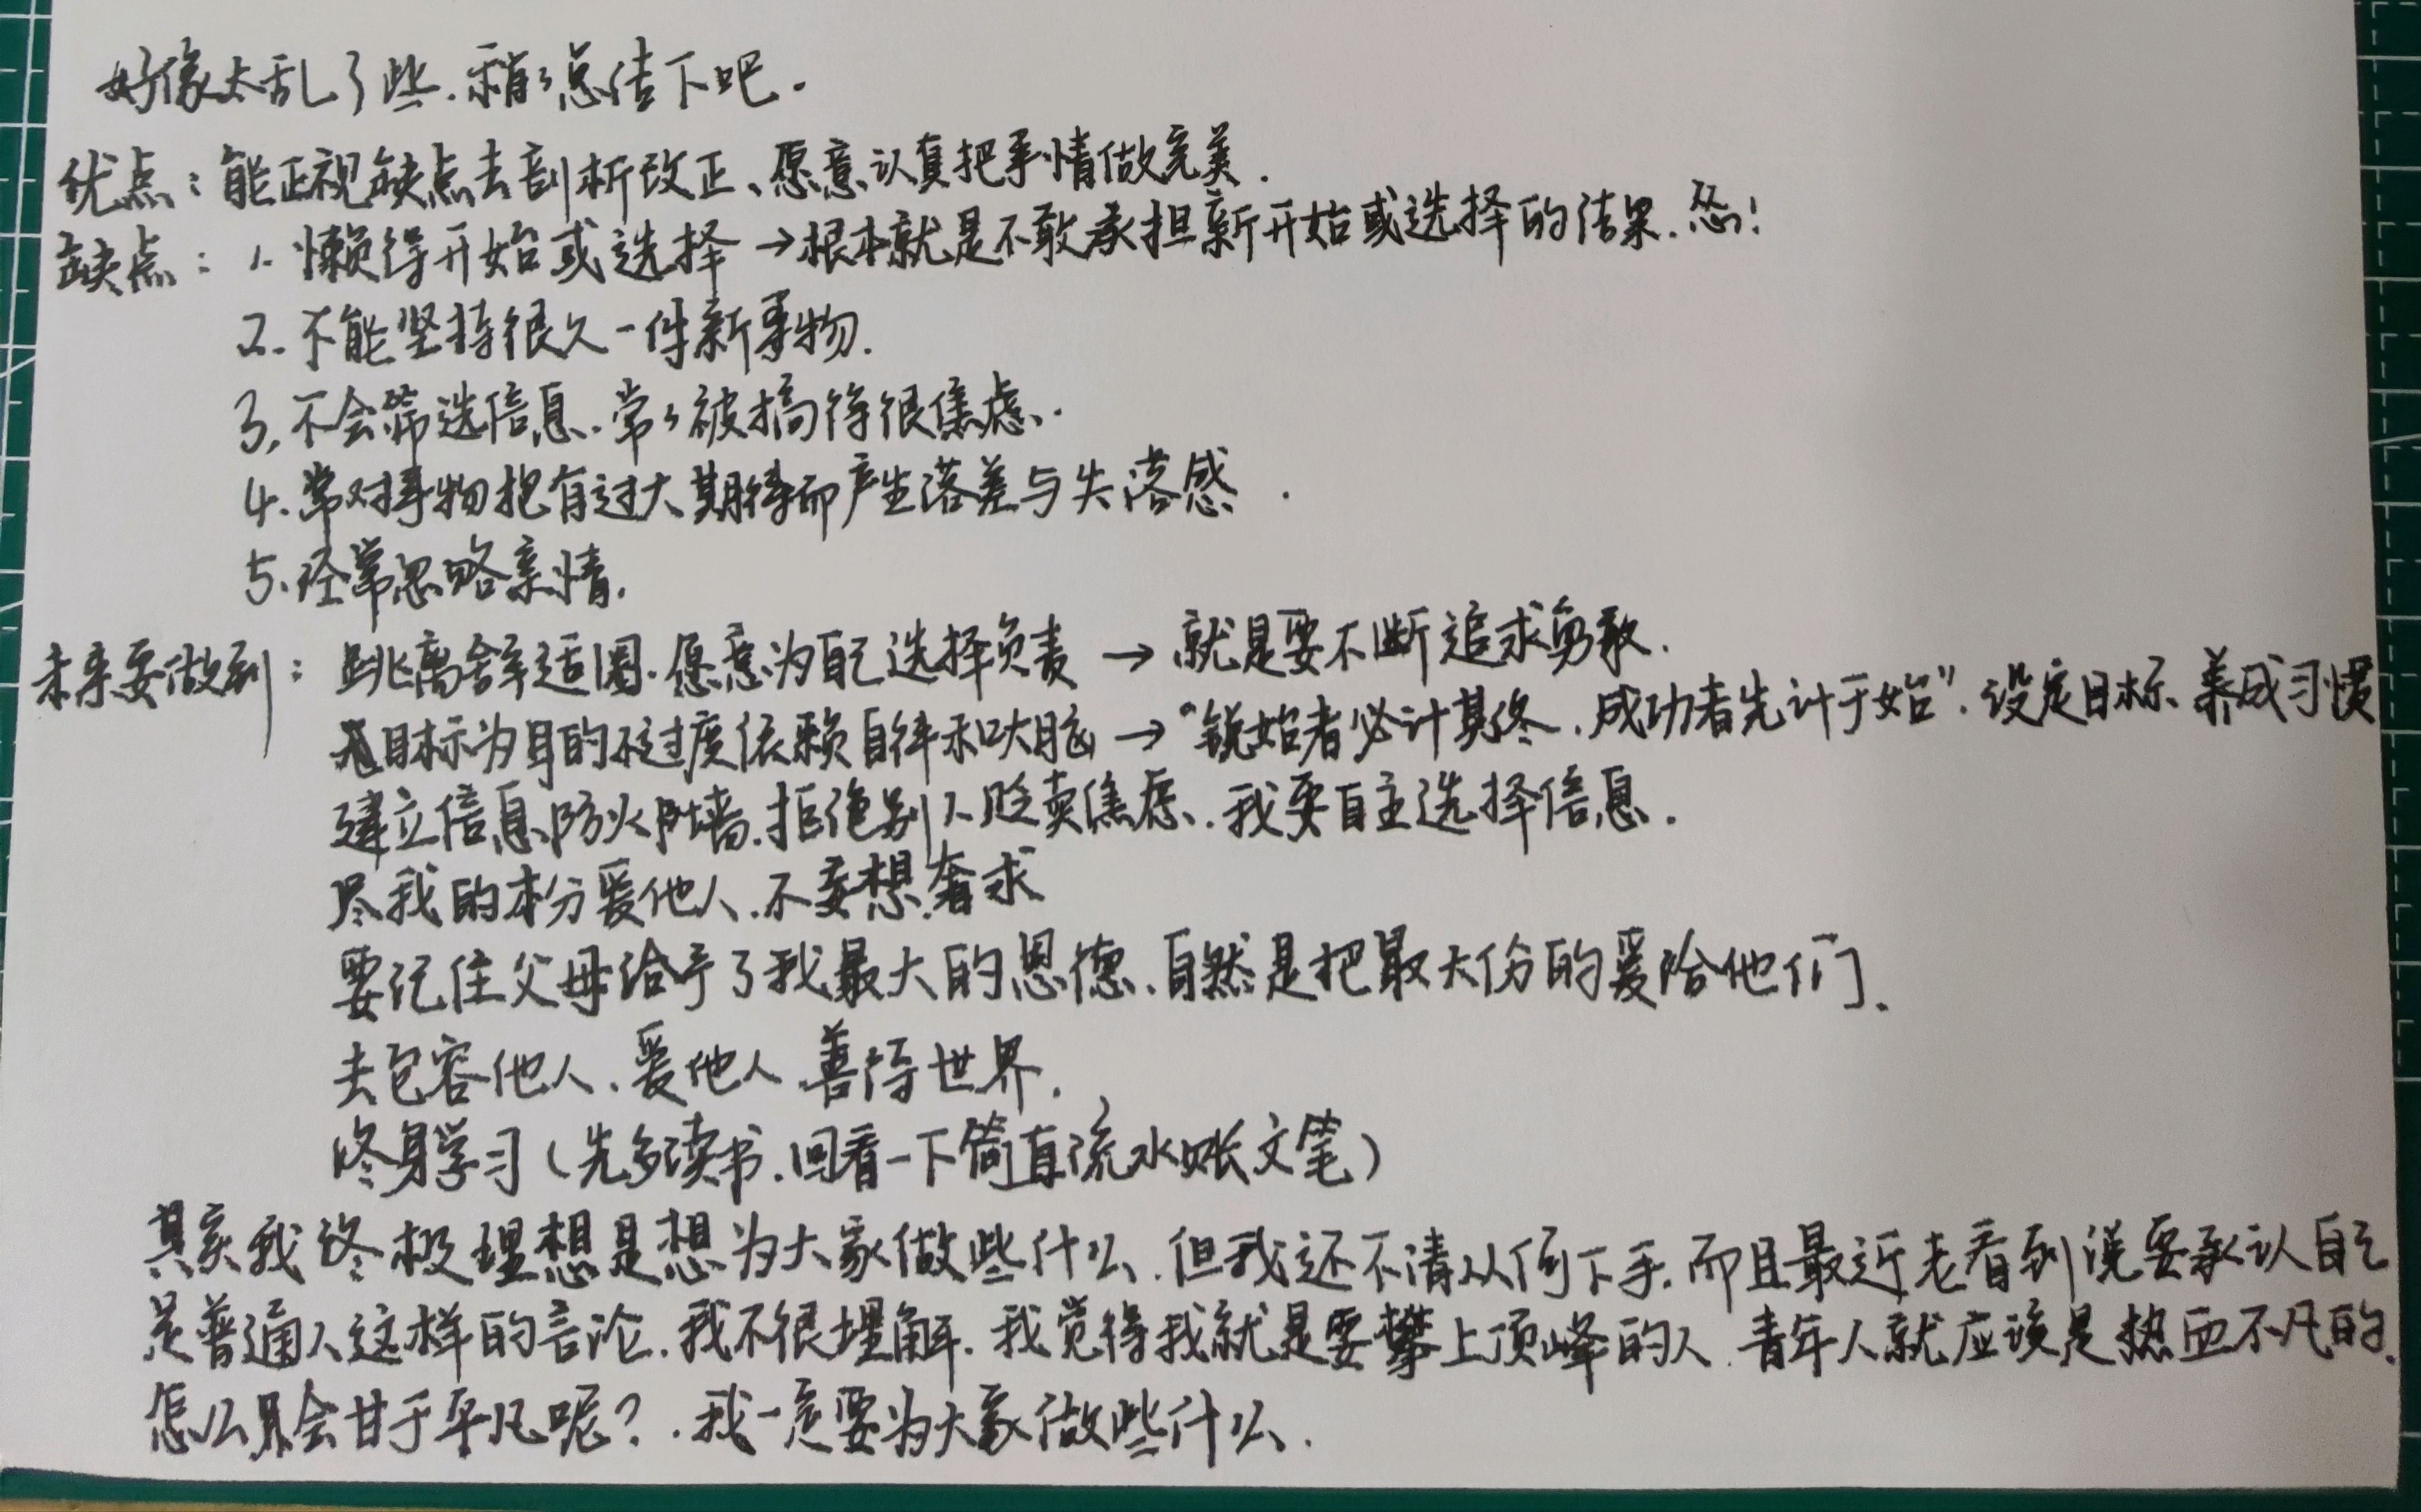 好像太乱了些.稍々总结下吧.
优点：能正视缺点去剖析改正、愿意认真把事情做完美.
缺点：1.懒得开始或选择→根本就是不敢承担新开始或选择的结果.怂!
2.不能坚持很久一件新事物.
3.不会筛选信息.常々被搞得很焦虑.
4.常对事物抱有过大期待而产生落差与失落感.
5.经常忽略亲情.
未来要做到：跳离舒适圈.愿意为自己选择负责→就是要不断追求勇敢.
目标为目的不过度依赖自律和大脑→“锐始者必计其终,成功者先计于始”.设定目标、养成习惯
建立信息防火墙.拒绝别人贩卖焦虑.我要自主选择信息.
尽我的本分爱他人.不妄想奢求
要记住父母给予了我最大的恩德.自然是把最大份的爱给他们.
去包容他人、爱他人.善待世界.
终身学习（先多读书.回看一下简直流水帐文笔）
其实我终极理想是想为大家做些什么.但我还不清从何下手.而且最近老看到说要承认自己
是普通人这样的言论.我不很理解.我觉得我就是要攀上顶峰的人.青年人就应该是热血不凡的.
怎么会甘于平凡呢?.我一定要为大家做些什么.